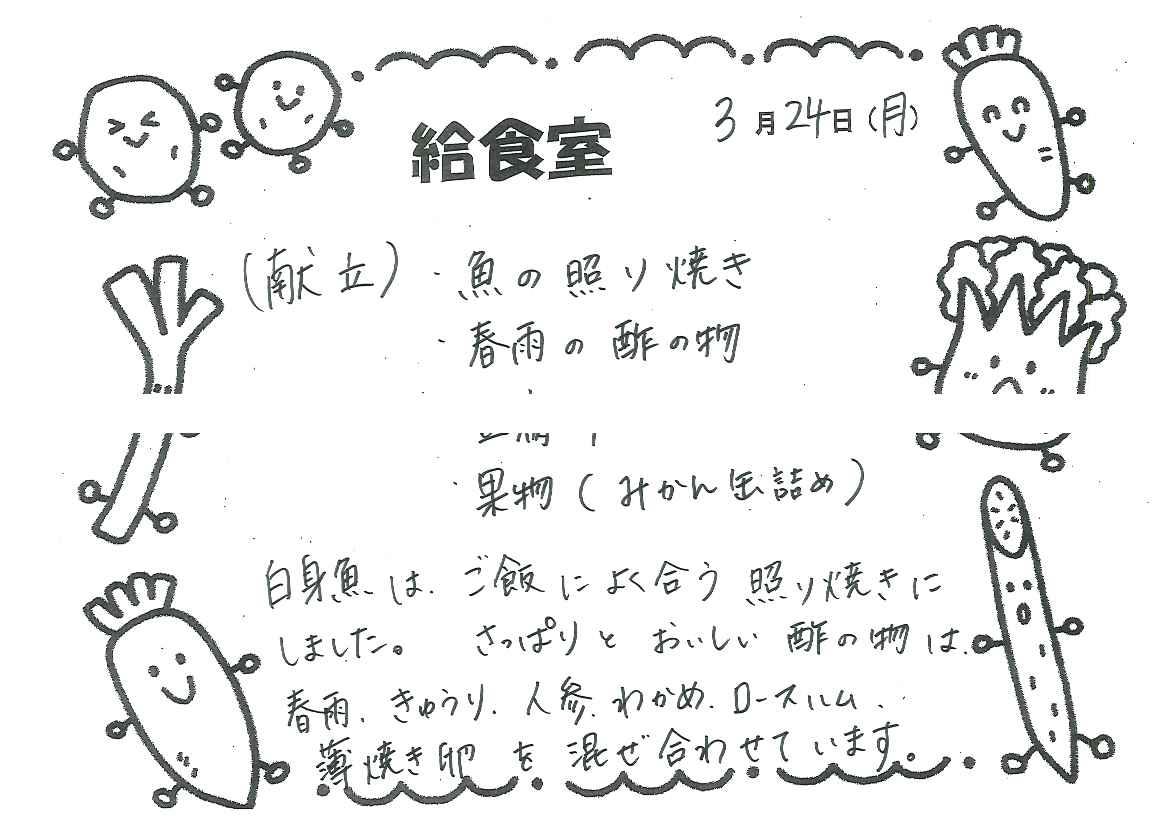 給食室
3月24日(月)
(献立)・魚の照り焼き
・春雨の酢の物
・果物(みかん缶詰め)
白身魚は、ご飯によく合う照り焼きに
しました。 さっぱりとおいしい酢の物は、
春雨、きゅうり、人参、わかめ、ロースハム、
薄焼き卵を混ぜ合わせています。